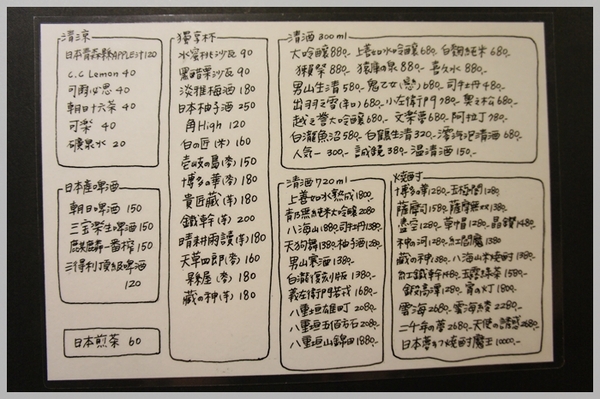 清涼
日本青森縣APPLE汁120
C.C Lemon 40
可爾必思 40
朝日十六茶 40
可樂 40
礦泉水 20
日本產啤酒
朝日啤酒 150
三宝樂生啤酒 150
麒麟一番搾 150
三得利頂級啤酒
120
日本煎茶 60
獨享杯
水蜜桃沙瓦 90
黑醋栗沙瓦 90
淡雅梅酒 180
日本柚子酒 250
角High 120
白の匠(米) 160
壱岐の島(麥) 150
博多の華(麥) 180
貴匠蔵(芋) 180
鐵幹(芋) 200
晴耕雨讀(芋) 180
天草四郎(麥) 160
(麥) 180
蔵の神(芋) 180
清酒 300ml
大吟釀 880.- 上善如水吟釀 680.- 白鶴純米 680.-
獺祭 880.- 880.- 喜久水 880.-
男山生酒 580.- 鬼乙女(戀) 680.- 480.-
出羽雪(和) 680.- 小左衛門 780.- 奧之松 680.-
越之譽大吟釀 680.- 文樂夢 680.- 阿拉丁 980.-
白瀧魚沼 580.- 白鶴生酒 320.- 清酒 680.-
人気一 300.- 誠鏡 380.- 温清酒 150.-
清酒 720ml
上善如水熟成 1800.-
純米大吟釀 2080.-
八海山 1380.-
天狗舞 1380.- 柚酒 1280.-
男山寒酒 1380.-
白瀧復刻版 1380.-
義左衛門 1680.-
八重垣雄町 2080.-
八重垣五百万石 2080.-
八重垣山錦田 1880.-
燒酎
博多の華 1280.- 五梅閣 1280.-
薩摩司 1580.- 薩摩無双 1380.-
1280.- 華帽 1280.- 晶鑽 1480.-
神の河 1280.- 紅閻魔 1380.-
蔵の神 1380.- 八海山米燒酎 1380.-
紅鐵幹 1480.- 五摩緑茶 1580.-
銀高澤 1280.- 宵の灯 1180.-
雲海 2680.- 雲海綾 2280.-
二千年の夢 2680.- 天使の誘惑 2680.-
日本夢幻燒酎魔王 10000.-